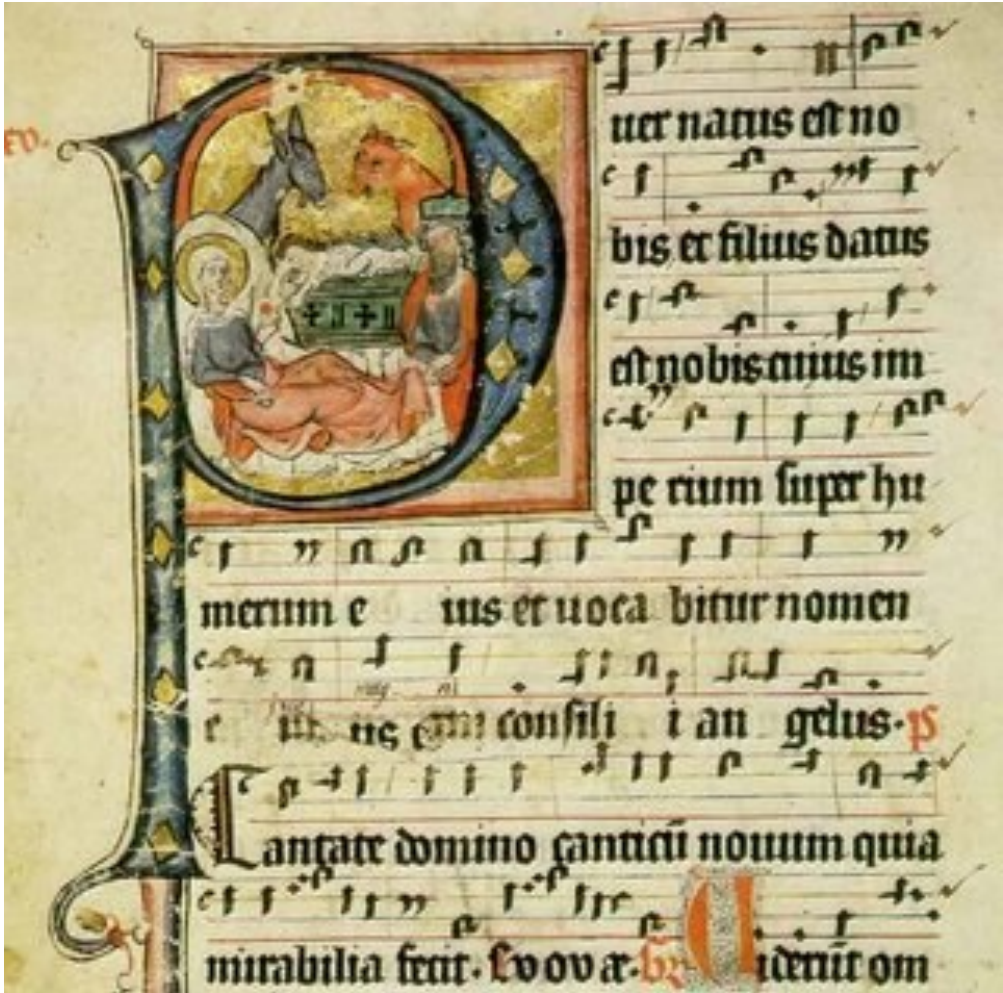 Puer natus est no
bis et filius datus
est nobis cuius im
pe rium super hu
merum e ius et uoca bitur nomen
e ius consili i an gelus. ps
Cantate domino canticū nouum quia
mirabilia fecit. Evovæ. Uiderūt om